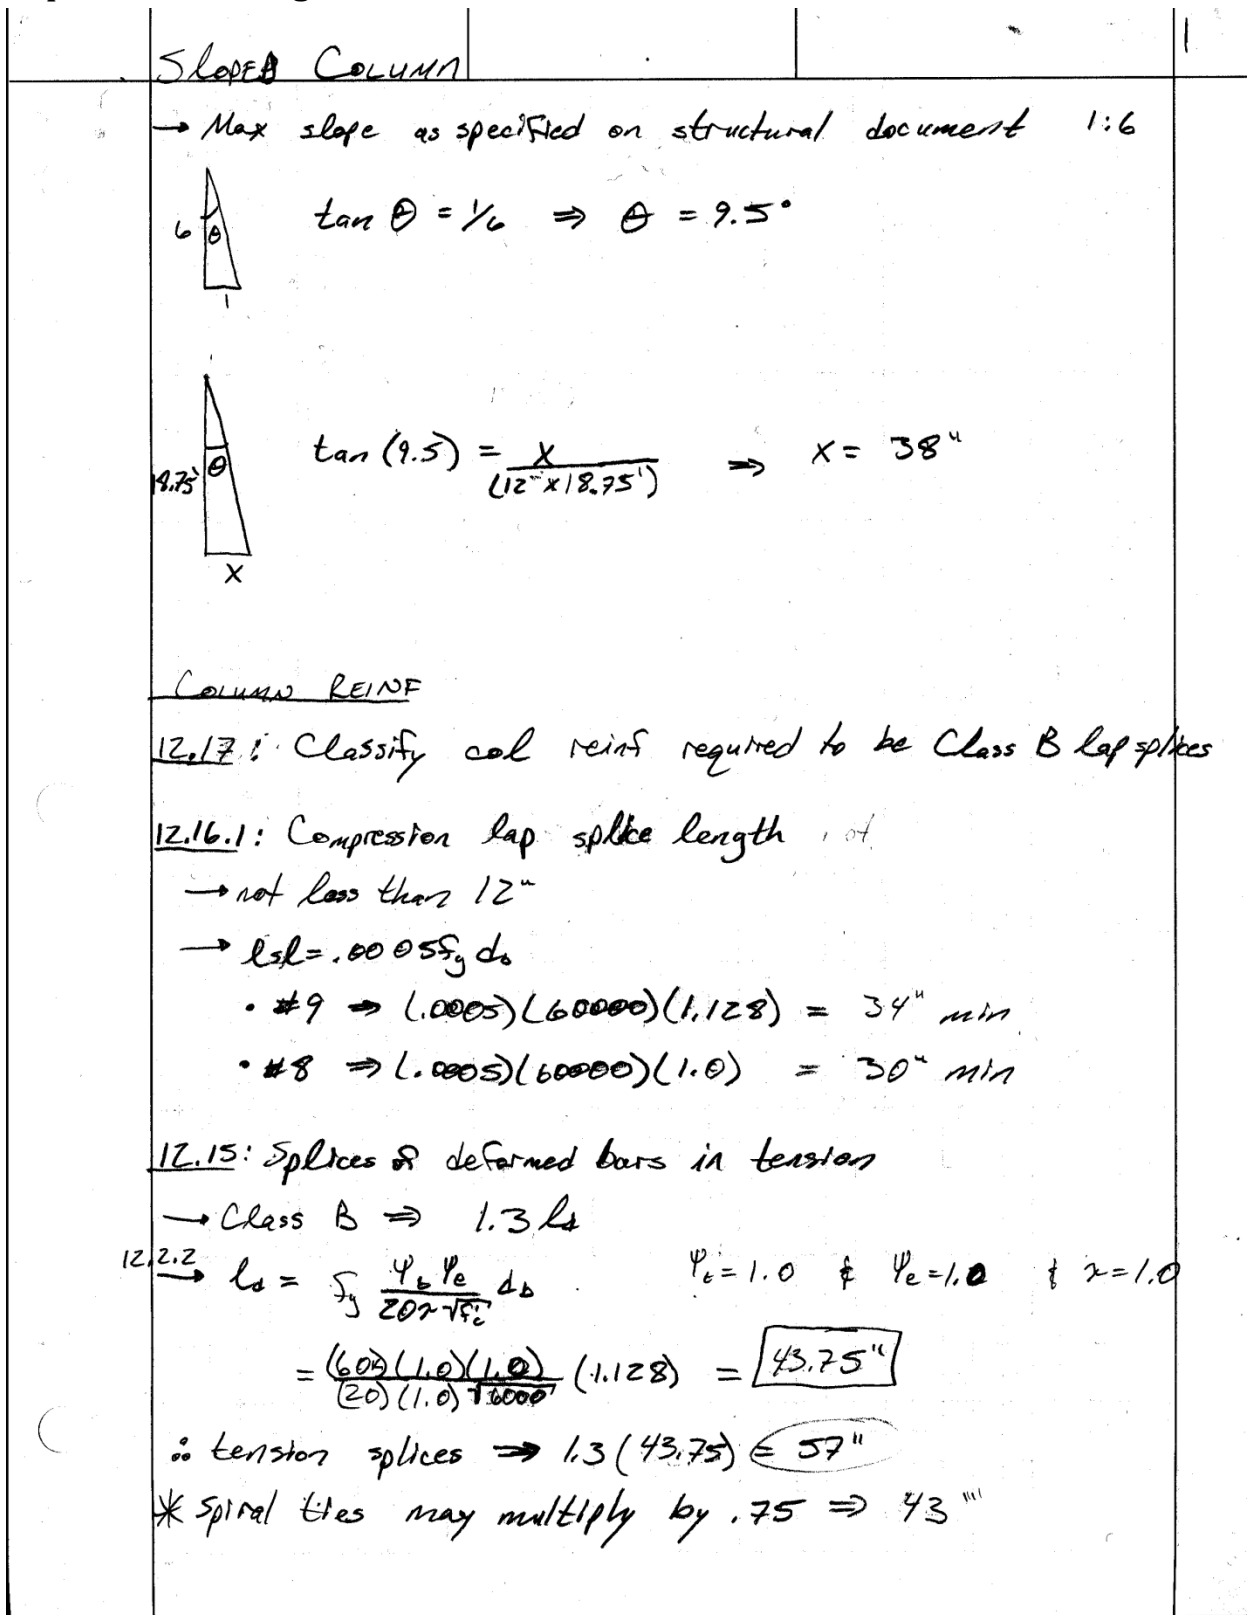 1
SLOPED COLUMN
→ Max slope as specified on structural document 1:6
6 θ 1
tan θ = 1/6 ⇒ θ = 9.5°
18.75' θ X
tan (9.5) = X / (12" x 18.75') ⇒ X = 38"
COLUMN REINF
12.17: Classify col reinf required to be Class B lap splices
12.16.1: Compression lap splice length
→ not less than 12"
→ lsl = .0005 fy db
• #9 ⇒ (.0005)(60000)(1.128) = 34" min
• #8 ⇒ (.0005)(60000)(1.0) = 30" min
12.15: Splices of deformed bars in tension
→ Class B ⇒ 1.3 ld
12.2.2 → ld = fy ψt ψe / 20 λ √f'c db ψt = 1.0 & ψe = 1.0 & λ = 1.0
= (60k)(1.0)(1.0) / (20)(1.0) √6000 (1.128) = 43.75"
∴ tension splices ⇒ 1.3 (43.75) = 57"
* Spiral ties may multiply by .75 ⇒ 43"